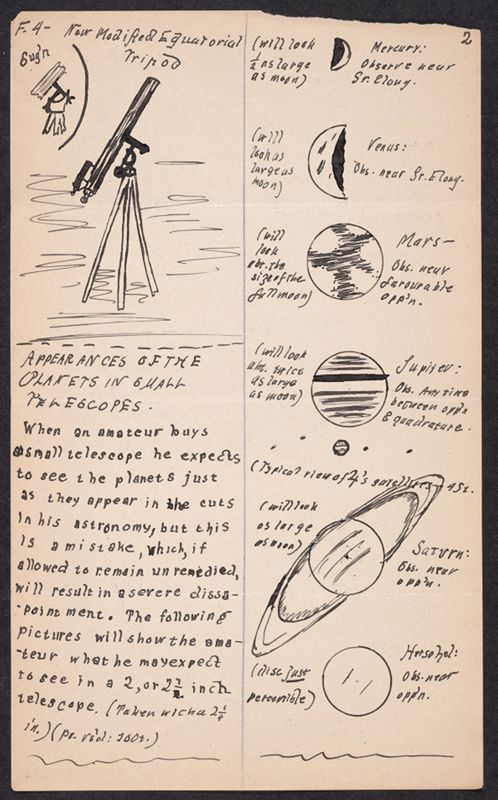 F. 4-
New Modified Equatorial
Tripod
6 up'n
APPEARANCES OF THE
PLANETS IN SMALL
TELESCOPES.
When an amateur buys
a small telescope he expects
to see the planets just
as they appear in the cuts
in his astronomy, but this
is a mistake, which, if
allowed to remain unremedied,
will result in a severe dissa-
-pointment. The following
pictures will show the ama-
-teur what he may expect
to see in a 2, or 2½ inch
telescope. (Taken with a 2¼
in.) (Pr. us'd: 100t.)
2
(will look
½ as large
as moon)
Mercury:
Observe near
Gr. Elong.
(will
look as
large as
moon)
Venus:
Obs. near Gr. Elong.
(will
look
abt. the
size of the
full moon)
Mars—
Obs. near
favourable
opp'n.
(will look
abt. twice
as large
as moon)
Jupiter:
Obs. Any time
between opp'n
& quadrature.
(Typical view of 4 satellites
(will look
as large
as moon)
Saturn:
Obs. near
opp'n.
(Disc just
perceptible)
Herschel:
Obs. near
opp'n.